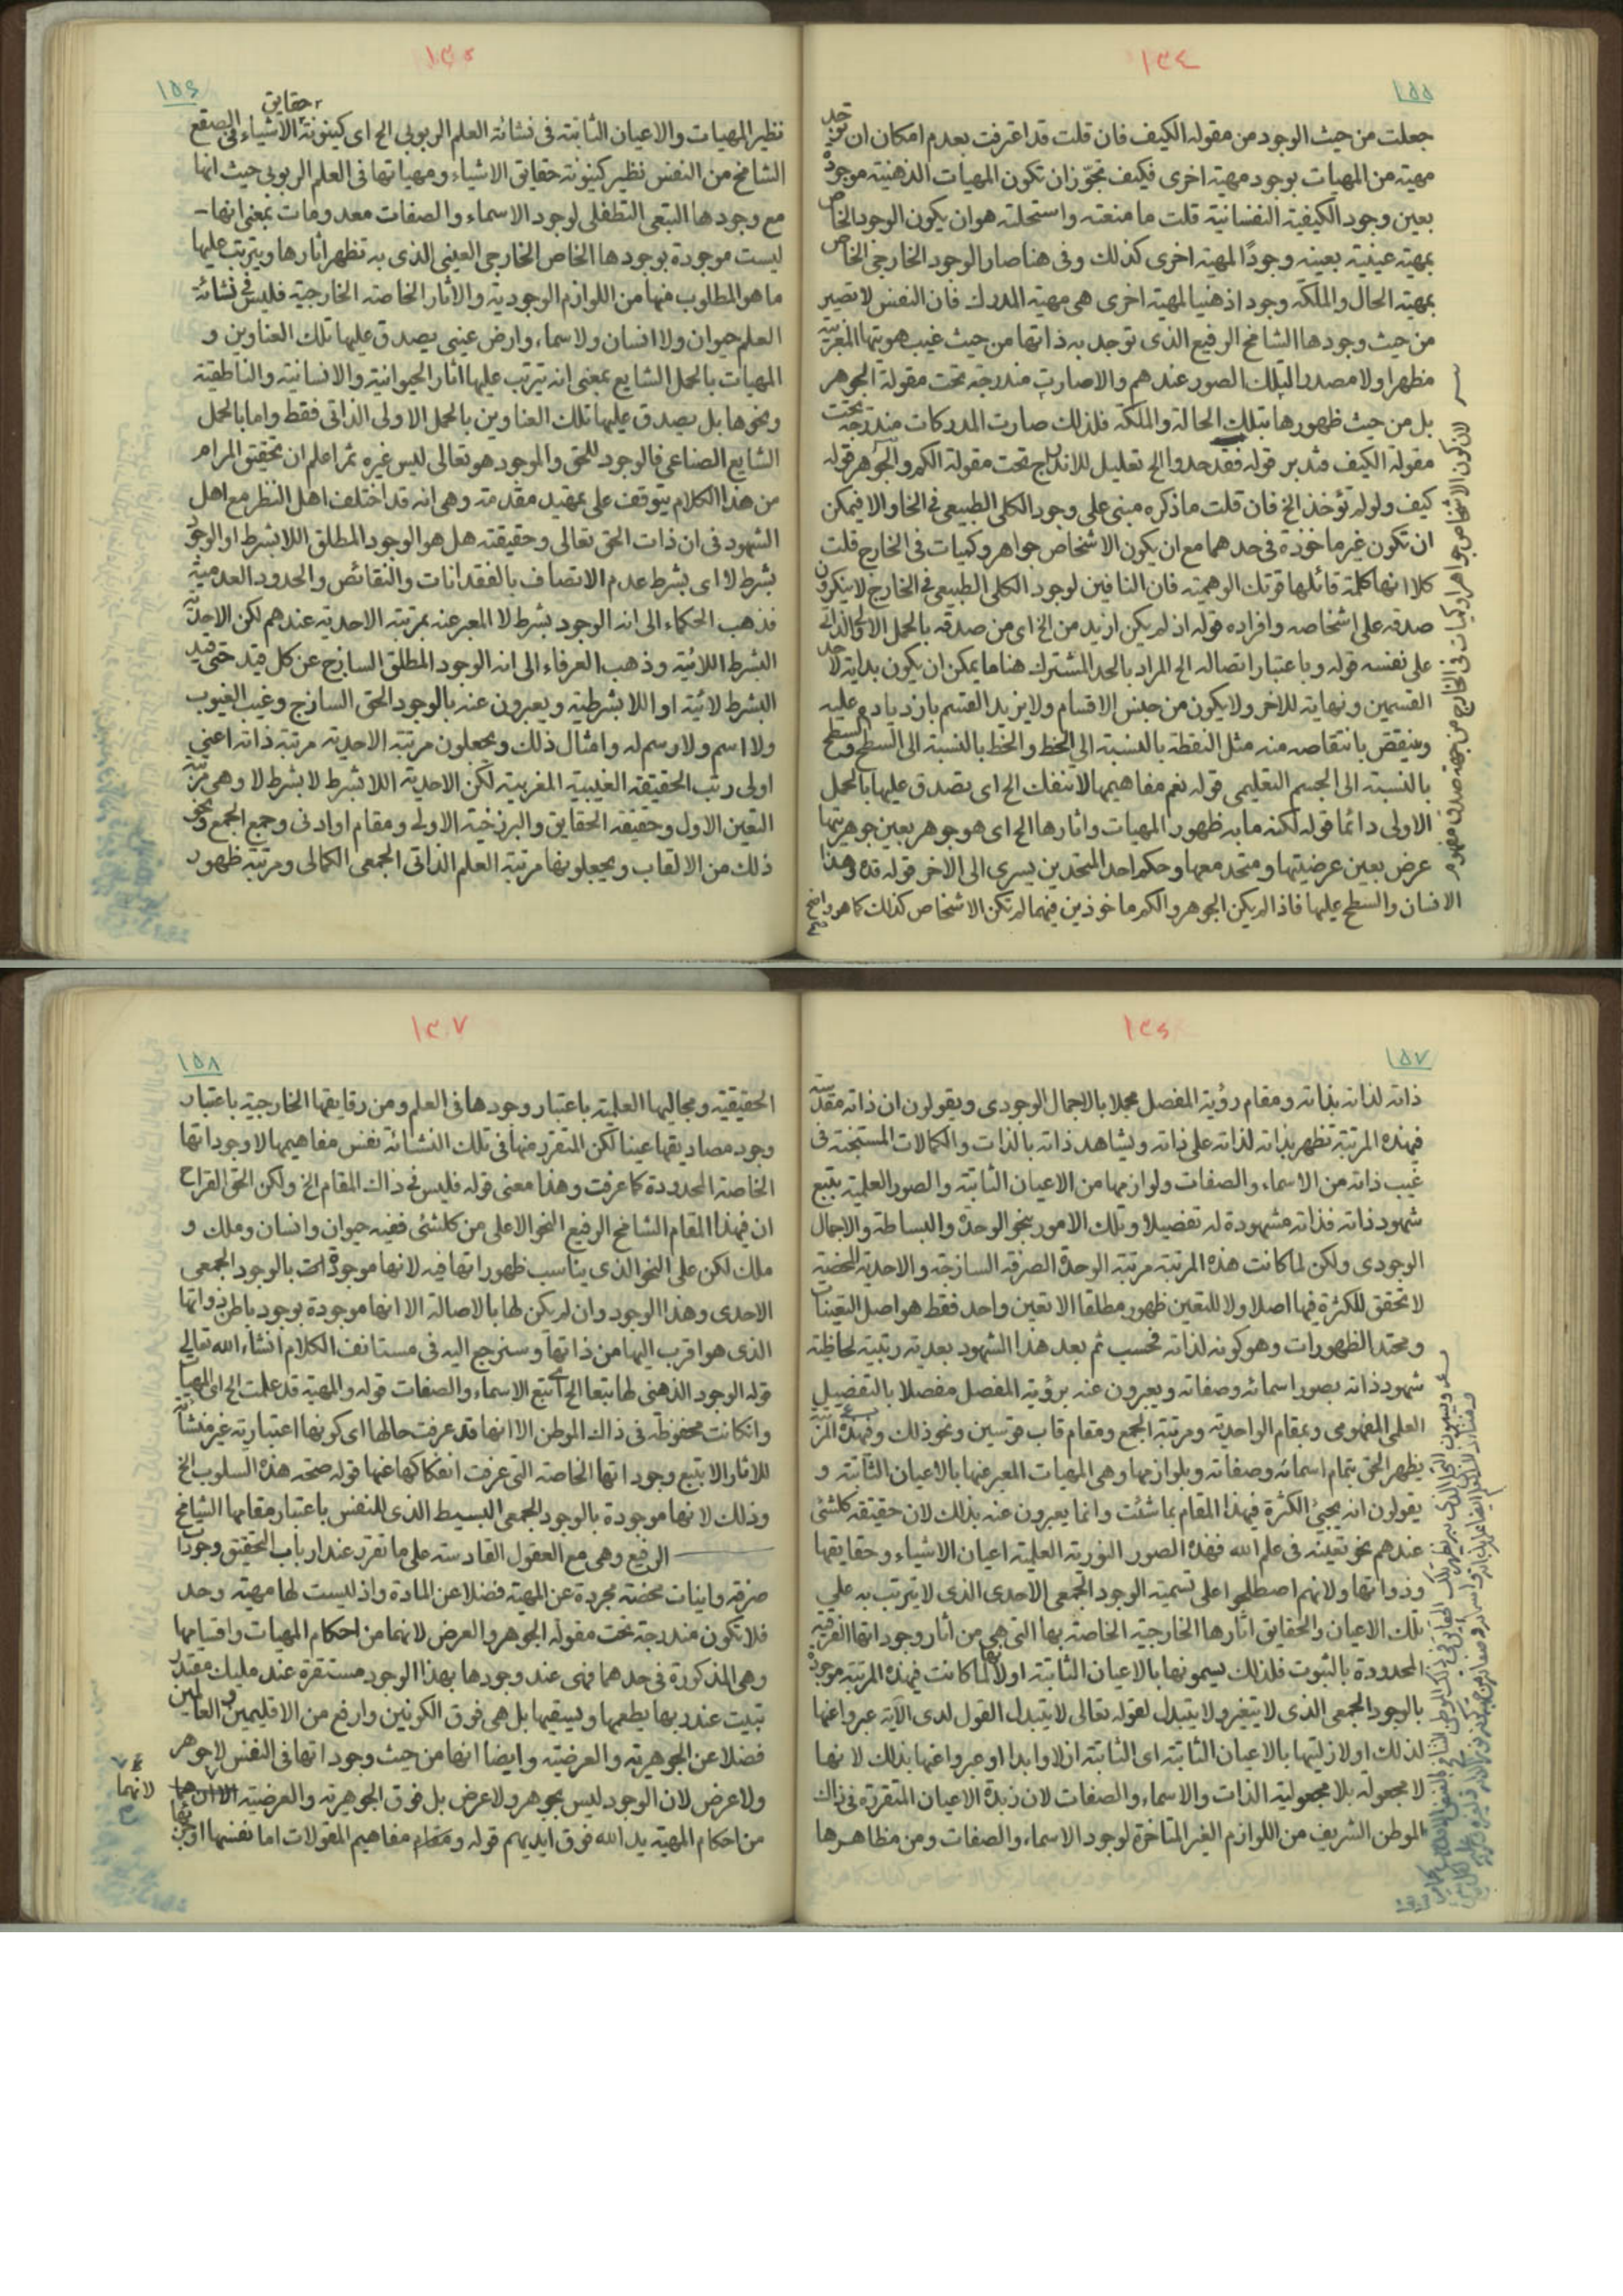 ١٣٤
١٥٥
جعلت من حيث الوجود من مقوله الكيف فان قلت قد اعترفت بعدم امكان ان توجد
مهية من المهيات بوجود مهية اخرى فكيف تجوّز ان تكون المهيات الذهنية موجودة
بعين وجود الكيفية النفسانية قلت ما منعته واستحلته هو ان يكون الوجود الخاص
بمهية عينية بعينه وجودًا لمهية اخرى كذلك وفى هنا صار الوجود الخارجى الخاص
بمهية الحال والملكة وجودا ذهنيا لمهية اخرى هى مهية المدرك فان النفس لا تصير
من حيث وجودها الشامخ الرفيع الذى توجد به ذاتها من حيث غيب هويتها المغربية
مظهرا ولا مصدرا لتلك الصور عندهم والا صارت مندرجة تحت مقولة الجوهر
بل من حيث ظهورها بتلك الحالة والملكة فلذلك صارت المدركات مندرجة تحت
مقولة الكيف فتدبر قوله فقد حدوا الخ تعليل للاندراج تحت مقولة الكم والجوهر قوله
كيف ولو لم تؤخذ الخ فان قلت ما ذكره مبنى على وجود الكلى الطبيعى فى الخارج والا فيمكن
ان تكون غير ماخوذة فى حدهما مع ان يكون الاشخاص جواهر وكميات فى الخارج قلت
كلا انها كلمة قائلها قوتك الوهمية فان النافين لوجود الكلى الطبيعى فى الخارج لا ينكرون
صدقه على اشخاصه وافراده قوله اذ لم يكن ازيد من الخ اى من صدقه بالحمل الاولى الذاتى
على نفسه قوله وباعتبار اتصاله الخ المراد بالحد المشترك هنا ما يمكن ان يكون بداية لاحد
القسمين ونهاية للاخر ولا يكون من جنس الاقسام ولا يزيد القسم بازدياده عليه
وينقص بانتقاصه منه مثل النقطة بالنسبة الى الخط والخط بالنسبة الى السطح والسطح
بالنسبة الى الجسم التعليمى قوله نعم مفاهيمها لا تنفك الخ اى تصدق عليها بالحمل
الاولى دائما قوله لكنه ما به ظهور المهيات واثارها الخ اى هو جوهر بعين جوهريتها
عرض بعين عرضيتها ومتحد معها وحكم احد المتحدين يسرى الى الاخر قوله قده وهذا
لان كون الاشخاص جواهر او كميات فى الخارج من جهة صدق مفهوم
الانسان والسطح عليها فاذا لم يكن الجوهر والكم ماخوذين فيهما لم تكن الاشخاص كذلك كما هو واضح
١٣٥
١٥٦
نظير المهيات والاعيان الثابتة فى نشاة العلم الربوبى الخ اى كينونة حقايق الاشياء فى الصقع
الشامخ من النفس نظير كينونة حقايق الاشياء ومهياتها فى العلم الربوبى حيث انها
مع وجودها التبعى التطفلى لوجود الاسماء والصفات معدومات بمعنى انها
ليست موجودة بوجودها الخاص الخارجى العينى الذى به تظهر اثارها ويترتب عليها
ما هو المطلوب منها من اللوازم الوجودية والاثار الخاصة الخارجية فليس فى نشاة
العلم حيوان ولا انسان ولا سماء وارض عينى يصدق عليها تلك العناوين و
المهيات بالحمل الشايع بمعنى انه يترتب عليها اثار الحيوانية والانسانية والناطقية
ونحوها بل يصدق عليها تلك العناوين بالحمل الاولى الذاتى فقط واما بالحمل
الشايع الصناعى فالوجود للحق والموجود هو تعالى ليس غيره ثم اعلم ان تحقيق المرام
من هذا الكلام يتوقف على تمهيد مقدمة وهى انه قد اختلف اهل النظر مع اهل
الشهود فى ان ذات الحق تعالى وحقيقته هل هو الوجود المطلق اللا بشرط او الوجود
بشرط لا اى بشرط عدم الاتصاف بالفقدانات والنقائص والحدود العدمية
فذهب الحكماء الى انه الوجود بشرط لا المعبر عنه بمرتبة الاحدية عندهم لكن الاحدية
البشرط اللائية وذهب العرفاء الى انه الوجود المطلق الساذج عن كل قيد حتى قيد
البشرط لائية او اللا بشرطية ويعبرون عنه بالوجود الحق الساذج وغيب الغيوب
ولا اسم ولا رسم له وامثال ذلك ويجعلون مرتبة الاحدية مرتبة ذاته اعنى
اولى رتب الحقيقة الغيبية المغربية لكن الاحدية اللا بشرط لا بشرط لا وهى مرتبة
التعين الاول وحقيقة الحقايق والبرزخية الاولى ومقام او ادنى وجمع الجمع ونحو
ذلك من الالقاب ويجعلونها مرتبة العلم الذاتى الجمعى الكمالى ومرتبة ظهور
١٥٧
ذاته لذاته بذاته ومقام رؤية المفصل مجملا بالاجمال الوجودى ويقولون ان ذاته مقدسة
فهذه المرتبة تظهر بذاته لذاته على ذاته ويشاهد ذاته بالذات والكمالات المستجنة فى
غيب ذاته من الاسماء والصفات ولوازمها من الاعيان الثابتة والصور العلمية بتبع
شهود ذاته فذاته مشهودة له تفصيلا وتلك الامور بنحو الوحدة والبساطة والاجمال
الوجودى ولكن لما كانت هذه المرتبة مرتبة الوحدة الصرفة الساذجة والاحدية المحضة
لا تحقق للكثرة فيها اصلا ولا للتعين ظهور مطلقا الا تعين واحد فقط هو اصل التعينات
ومحتد الظهورات وهو كونه لذاته فحسب ثم بعد هذا الشهود بعدية رتبية لحاظية
شهود ذاته بصور اسمائه وصفاته ويعبرون عنه برؤية المفصل مفصلا بالتفصيل
العلمى المفهومى وبمقام الواحدية ومرتبة الجمع ومقام قاب قوسين ونحو ذلك وفهذه المرتبة
يظهر الحق بتمام اسمائه وصفاته وبلوازمها وهى المهيات المعبر عنها بالاعيان الثابتة و
يقولون انه يجيئ الكثرة فهذا المقام بما شئت وانما يعبرون عنه بذلك لان حقيقة كلشئ
عندهم نحو تعينه فى علم الله فهذه الصور النورية العلمية اعيان الاشياء وحقايقها
وذواتها ولانهم اصطلحوا على تسمية الوجود الجمعى الاحدى الذى لا يترتب به على
تلك الاعيان والحقايق اثارها الخارجية الخاصة بها التى هى من اثار وجوداتها الفرقية
المحدودة بالثبوت فلذلك يسمونها بالاعيان الثابتة او لانها لما كانت فهذه المرتبة موجودة
بالوجود الجمعى الذى لا يتغير ولا يتبدل لقوله تعالى لا يتبدل القول لدى الاية عبروا عنها
لذلك او لازليتها بالاعيان الثابتة اى الثابتة ازلا وابدا او عبروا عنها بذلك لانها
لا مجعولة بلا مجعولية الذات والاسماء والصفات لان زبدة الاعيان المتقررة فى ذاك
الموطن الشريف من اللوازم الغير المتاخرة لوجود الاسماء والصفات ومن مظاهرها
١٣٧
١٥٨
الحقيقية ومجاليها العلمية باعتبار وجودها فى العلم ومن رقايقها الخارجية باعتبار
وجود مصاديقها عينا لكن المتقرر منها فى تلك النشاة نفس مفاهيمها لا وجوداتها
الخاصة المحدودة كما عرفت وهذا معنى قوله فليس فى ذاك المقام الخ ولكن الحق القراح
ان فهذا المقام الشامخ الرفيع النحو الاعلى من كلشئ ففيه حيوان وانسان وملك و
ملك لكن على النحو الذى يناسب ظهوراتها فيه لانها موجودة بالوجود الجمعى
الاحدى وهذا الوجود وان لم يكن لها بالاصالة الا انها موجودة بوجود باطن ذواتها
الذى هو اقرب اليها من ذاتها وسنرجع اليه فى مستانف الكلام انشاء الله تعالى
قوله الوجود الذهنى لها تبعا الخ اى بتبع الاسماء والصفات قوله والمهية قد علمت الخ اى المهيات
وانكانت محفوظة فى ذاك الموطن الا انها قد عرفت حالها اى كونها اعتبارية غير منشاة
للاثار الا بتبع وجوداتها الخاصة التى عرفت انفكاكها عنها قوله صحة هذه السلوب الخ
وذلك لانها موجودة بالوجود الجمعى البسيط الذى للنفس باعتبار مقامها الشامخ
الرفيع وهى مع العقول القادسة على ما تقرر عند ارباب التحقيق وجودات
صرفة وانيات محضة مجردة عن المهية فضلا عن المادة واذ ليست لها مهية وحد
فلا تكون مندرجة تحت مقولة الجوهر والعرض لانهما من احكام المهيات واقسامها
وهى المذكورة فى حدهما فهى عند وجودها بهذا الوجود مستقرة عند مليك مقتدر
تبيت عند ربها يطعمها ويسقيها بل هى فوق الكونين وارفع من الاقليمين العالمين
فضلا عن الجوهرية والعرضية وايضا انها من حيث وجوداتها فى النفس لا جوهر
ولا عرض لان الوجود ليس بجوهر ولا عرض بل فوق الجوهرية والعرضية
لانهما
من احكام المهية يد الله فوق ايديهم قوله ومقام مفاهيم المقولات اما نفسها او